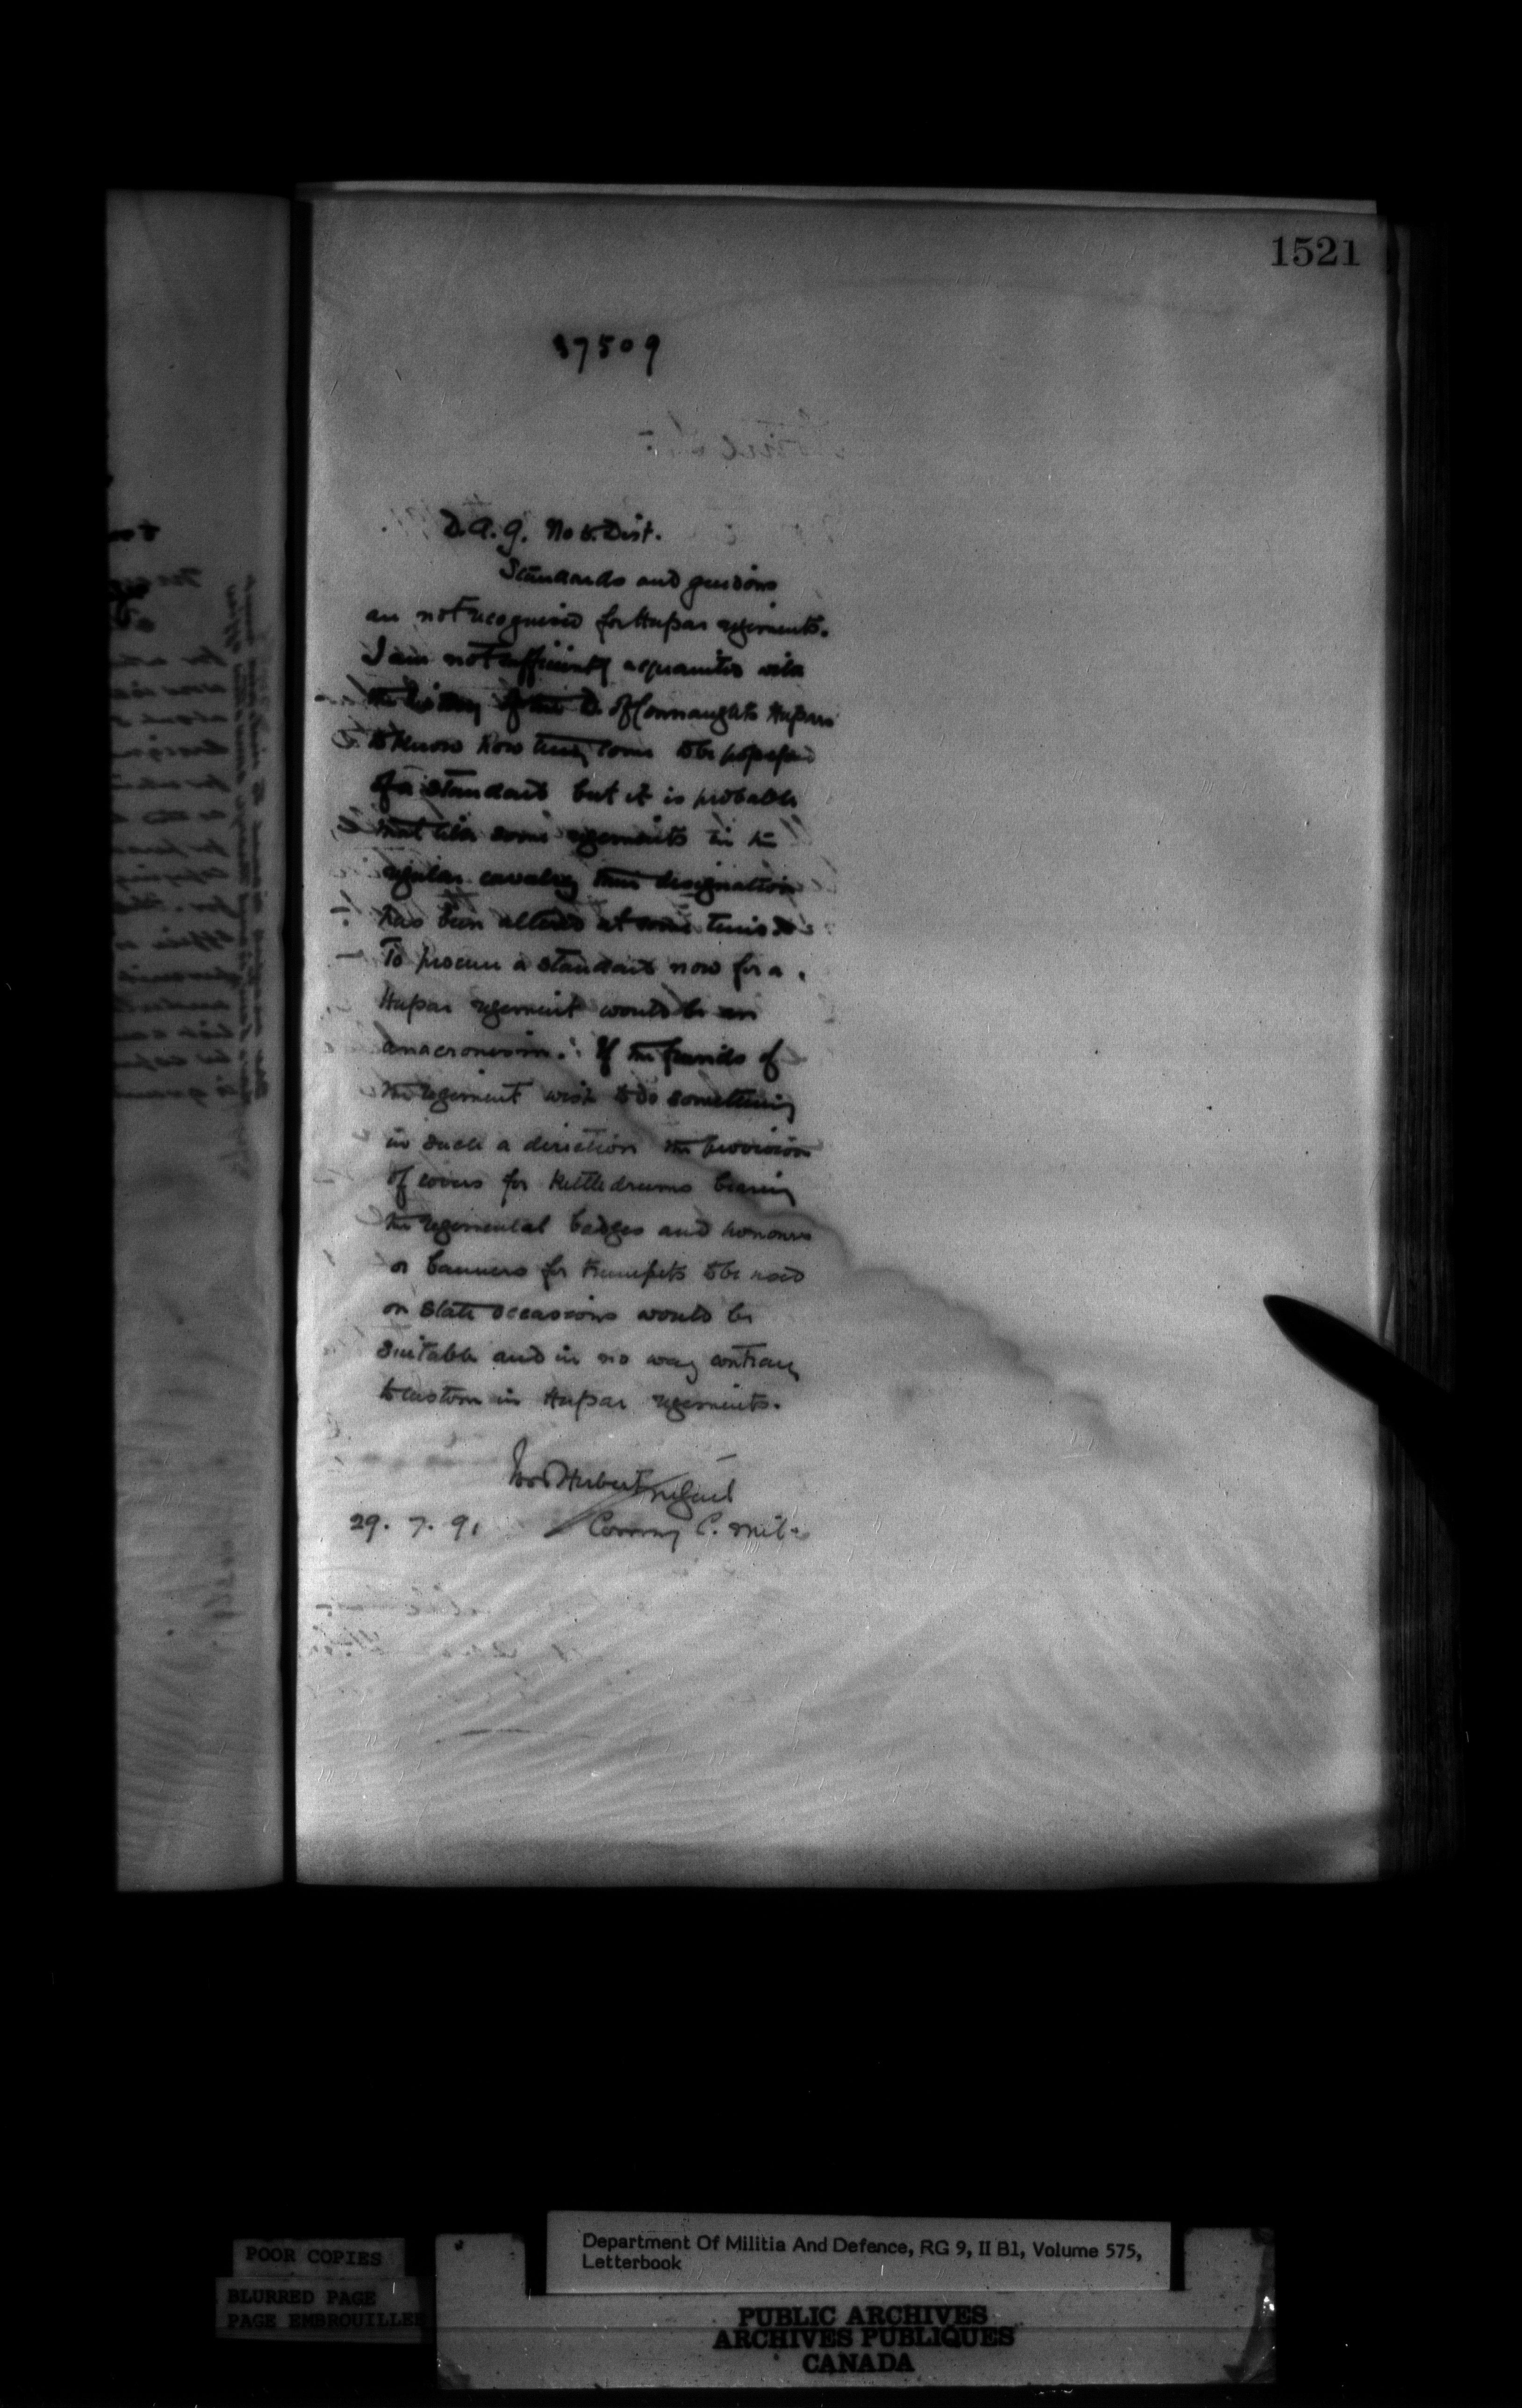 1521
37509
D.A.G. No 5. Dist.
Standards and guidons
are not recognised for Hussar regiments.
I am not sufficiently acquainted with
the history of the D. of Connaughts Hussars
to know how they come to be possessed
of a standard but it is probable
that like some regiments in the
regular cavalry their designation
has been altered at some time
To procure a standard now for a
Hussar regiment would be an
anacronesim. If the friends of
the regiment wish to do something
in such a direction the provision
of covers for Kettledrums bearing
the regimental badges and honours
or banners for trumpets to be used
on State occasions would be
suitable and in no way contrary
to custom in Hussar regiments.
Ivor Herbert
29. 7. 91 Commg C. Mil
POOR COPIES
BLURRED PAGE
PAGE EMBROUILLEE
Department Of Militia And Defence, RG 9, II B1, Volume 575,
Letterbook
PUBLIC ARCHIVES
ARCHIVES PUBLIQUES
CANADA